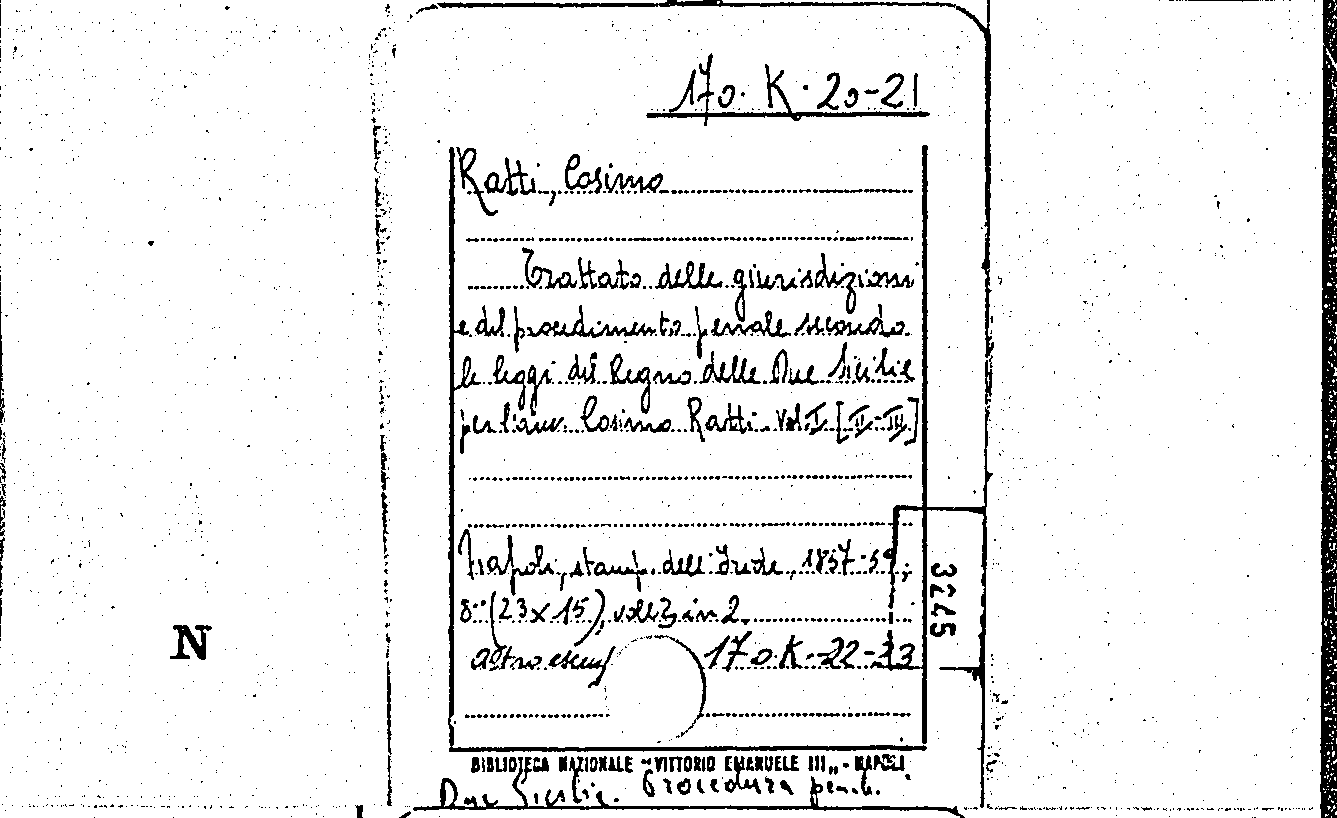 170. K. 20-21
Ratti, Cosimo
Trattato delle giurisdizioni
e del procedimento penale secondo
le leggi del Regno delle Due Sicilie
per l'avv. Cosimo Ratti. vol. I [II-III]
Napoli, stamp. dell'Iride, 1857-59;
8° (23 x 15), voll. 3 in 2.
3245
N
altro esemp 170. K. 22-23
BIBLIOTECA NAZIONALE "VITTORIO EMANUELE III„ - NAPOLI
Due Sicilie. Procedura penale.